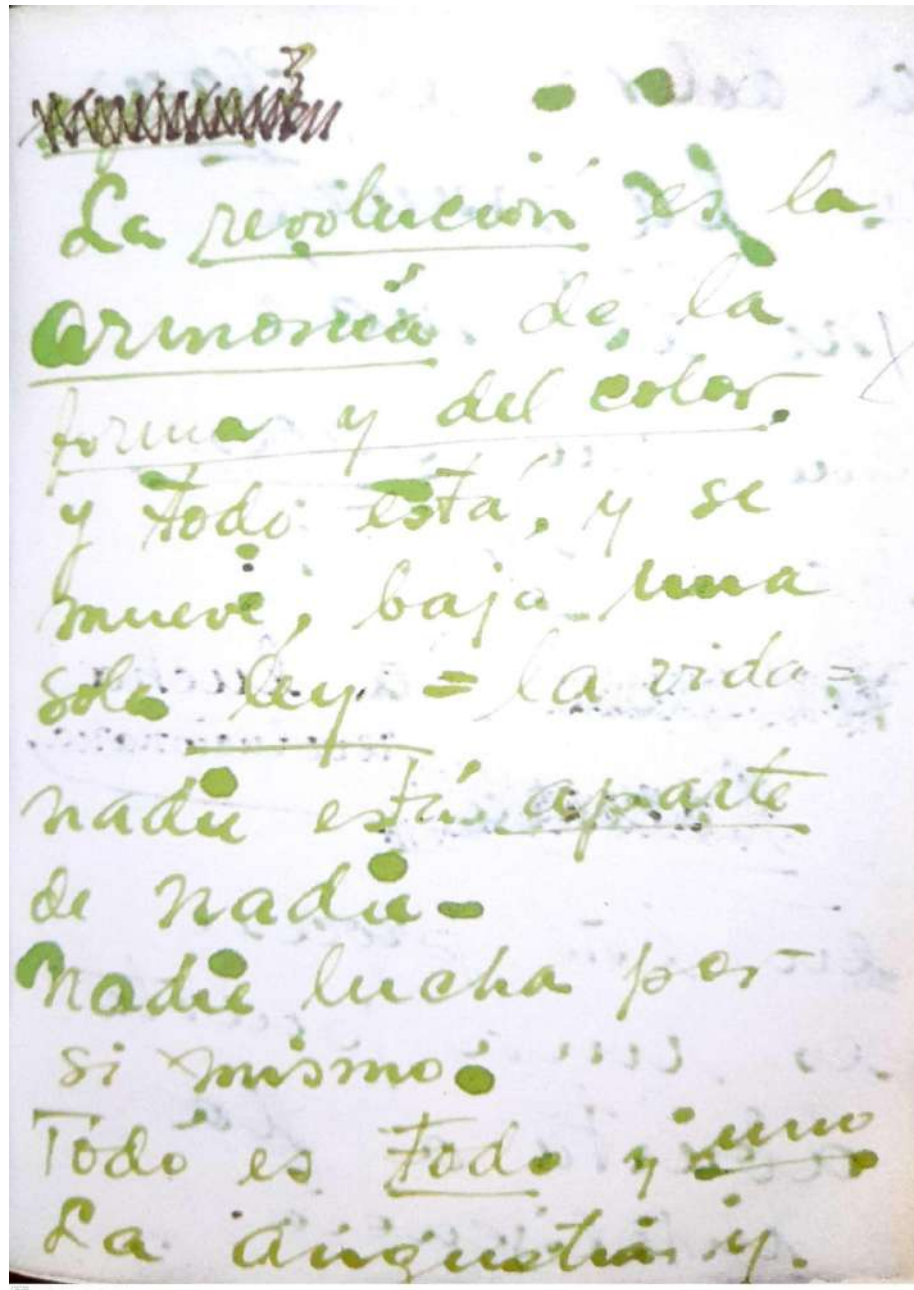 La revolución es la
armonía de la
forma y del color.
y todo está, y se
mueve, bajo una
sola ley = la vida =
nadie está aparte
de nadie -
Nadie lucha por
si mismo.
Todo es todo y uno
La angustia y.